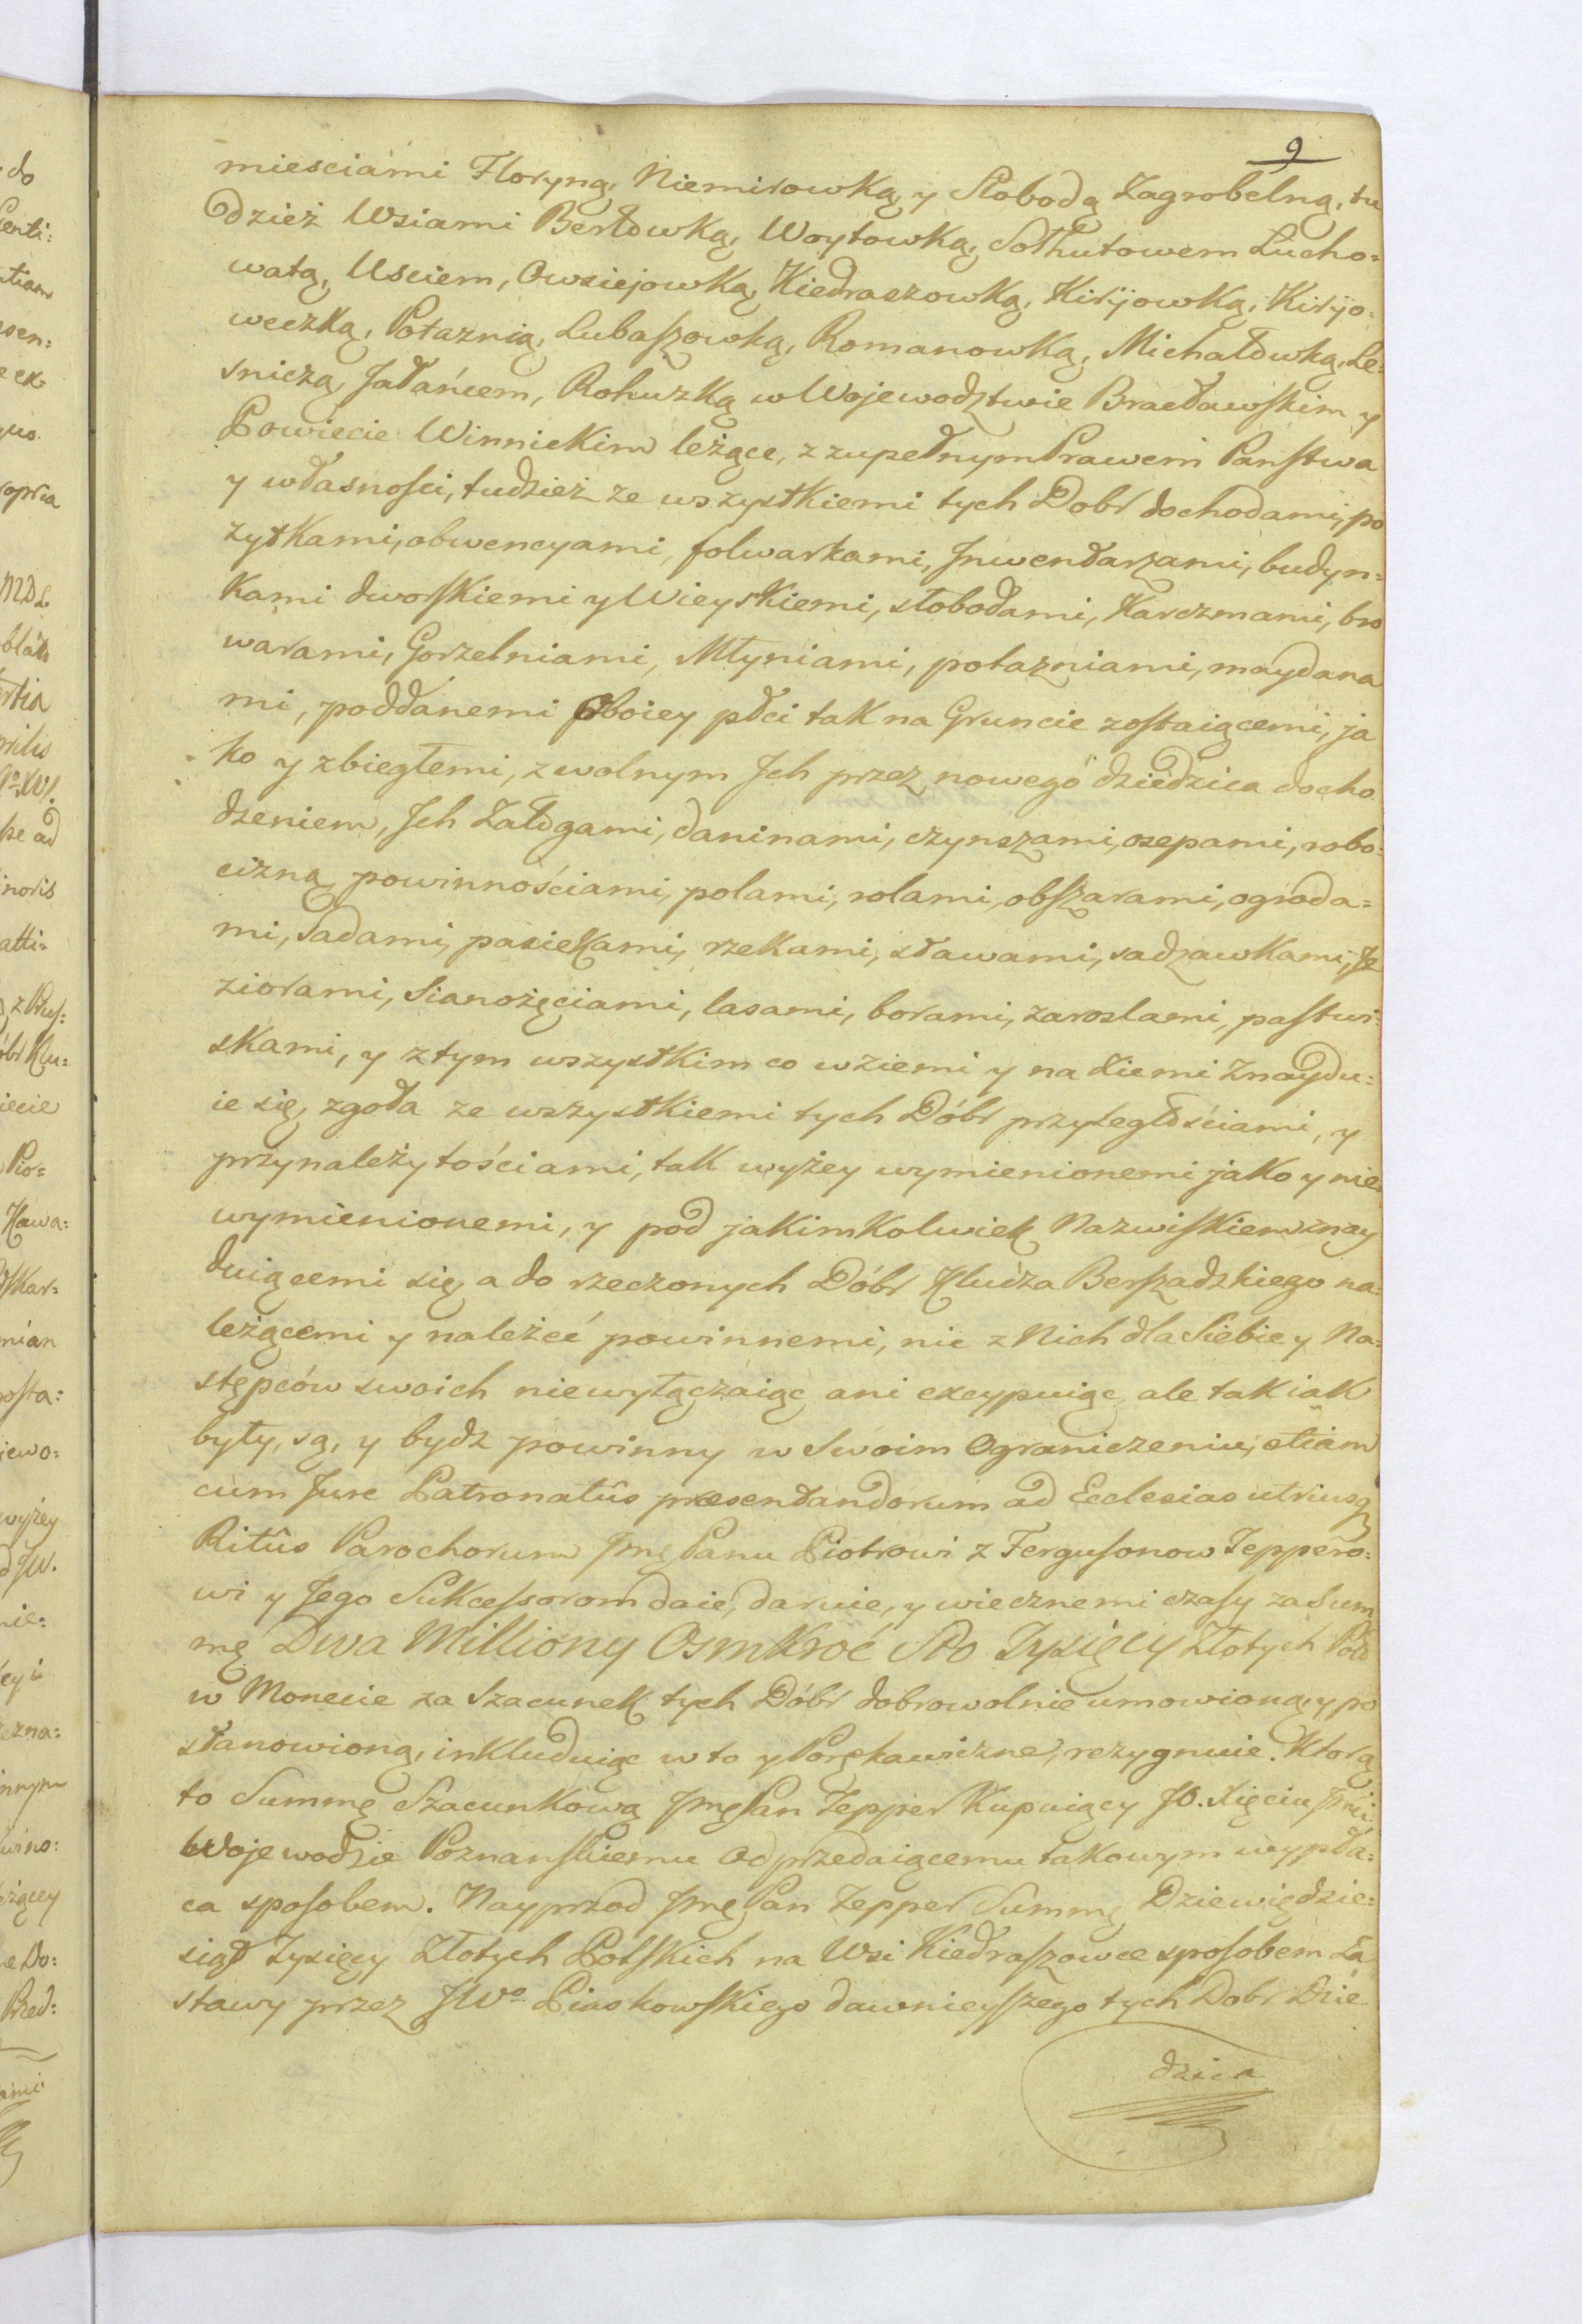 9
miesciámi Floryną, Niemirowką y Słobodą Zagrobelną, tu
dzież Wsiami Berłowką, Woytowką, Sołhutowem Łucho=
watą, Usciem, Owsiejowką, Kiedraszowką, Kiryjowką, Kiryjo=
weczką, Potaznią, Lubaszowką, Romanowką, Michałowką, Le=
sniczą, Jałańcem, Rohuzką w Wojewodztwie Bracławskim y
Powiecie Winnickim leżące, z zupełnym Prawem Panstwa
y własnosci, tudzież ze wszystkiemi tych Dobr dochodami, po
zytkami, obwencyami, folwarkami, Jnwentarzami, budyn=
kami dworskiemi y Wieyskiemi, słobodami, Karczmami, bro
warami, Gorzelniami, Młyniami, potazniami, maydana
mi, poddanemi oboiey płci tak na Gruncie zostaiącemi, ja
ko y zbiegłemi, z wolnym Jch przez nowego dziedzica docho
dzeniem, Jch Załogami, daninami, czynszami, osepami, robo=
cizną, powinnościami, polami, rolami, obszarami, ogroda=
mi, Sadami, pasiekami, rzekami, stawami, sadzawkami, Je
ziorami, Sianożęciami, lasami, borami, zaroslami, pastwi=
skami, y z tym wszystkim co w ziemi y na Ziemi Znaydu=
ie się, zgoła ze wszystkiemi tych Dóbr przyległościami, y
przynależytościami, tak wyżey wymienionemi jako y nie
wymienionemi, y pod jakimkolwiek Nazwiskiem znay
duiącemi się, a do rzeczonych Dóbr Klucza Berszadzkiego na=
leżącemi y należeć powinnemi, nic z Nich dla Siebie y Na=
stępców swoich niewyłączaiąc ani excypuiąc, ale tak iak
były, są, y bydz powinny w Swoim Ograniczeniu, etiam
cum Jure Patronatûs praesentandorum ad Ecclesias utriusq
Ritûs Parochorum Jmę Panu Piotrowi z Fergusonow Teppero=
wi y Jego Sukcessorom daie, daruie, y wiecznemi czasy za Sum
mę Dwa Milliony Osmkroć Sto Tysięcy Złotych Pol
w Monecie za Szacunek tych Dóbr dobrowolnie umowioną, y po
stanowioną, inkluduiąc w to y Porękawiczne, rezygnuie. Ktorą
to Summę Szacunkową Jmę Pan Tepper Kupuiący JO. Xięciu Jmci
Wojewodzie Poznanskiemu Odprzedaiącemu takowym wypła=
ca sposobem. Nayprzod Jmę Pan Tepper Summę Dziewiędzie=
siąt Tysięcy Złotych Polskich na Wsi Kiedraszowce sposobem Za
stawy przez JWo Piaskowskiego dawnieyszego tych Dobr Dzie
dzica